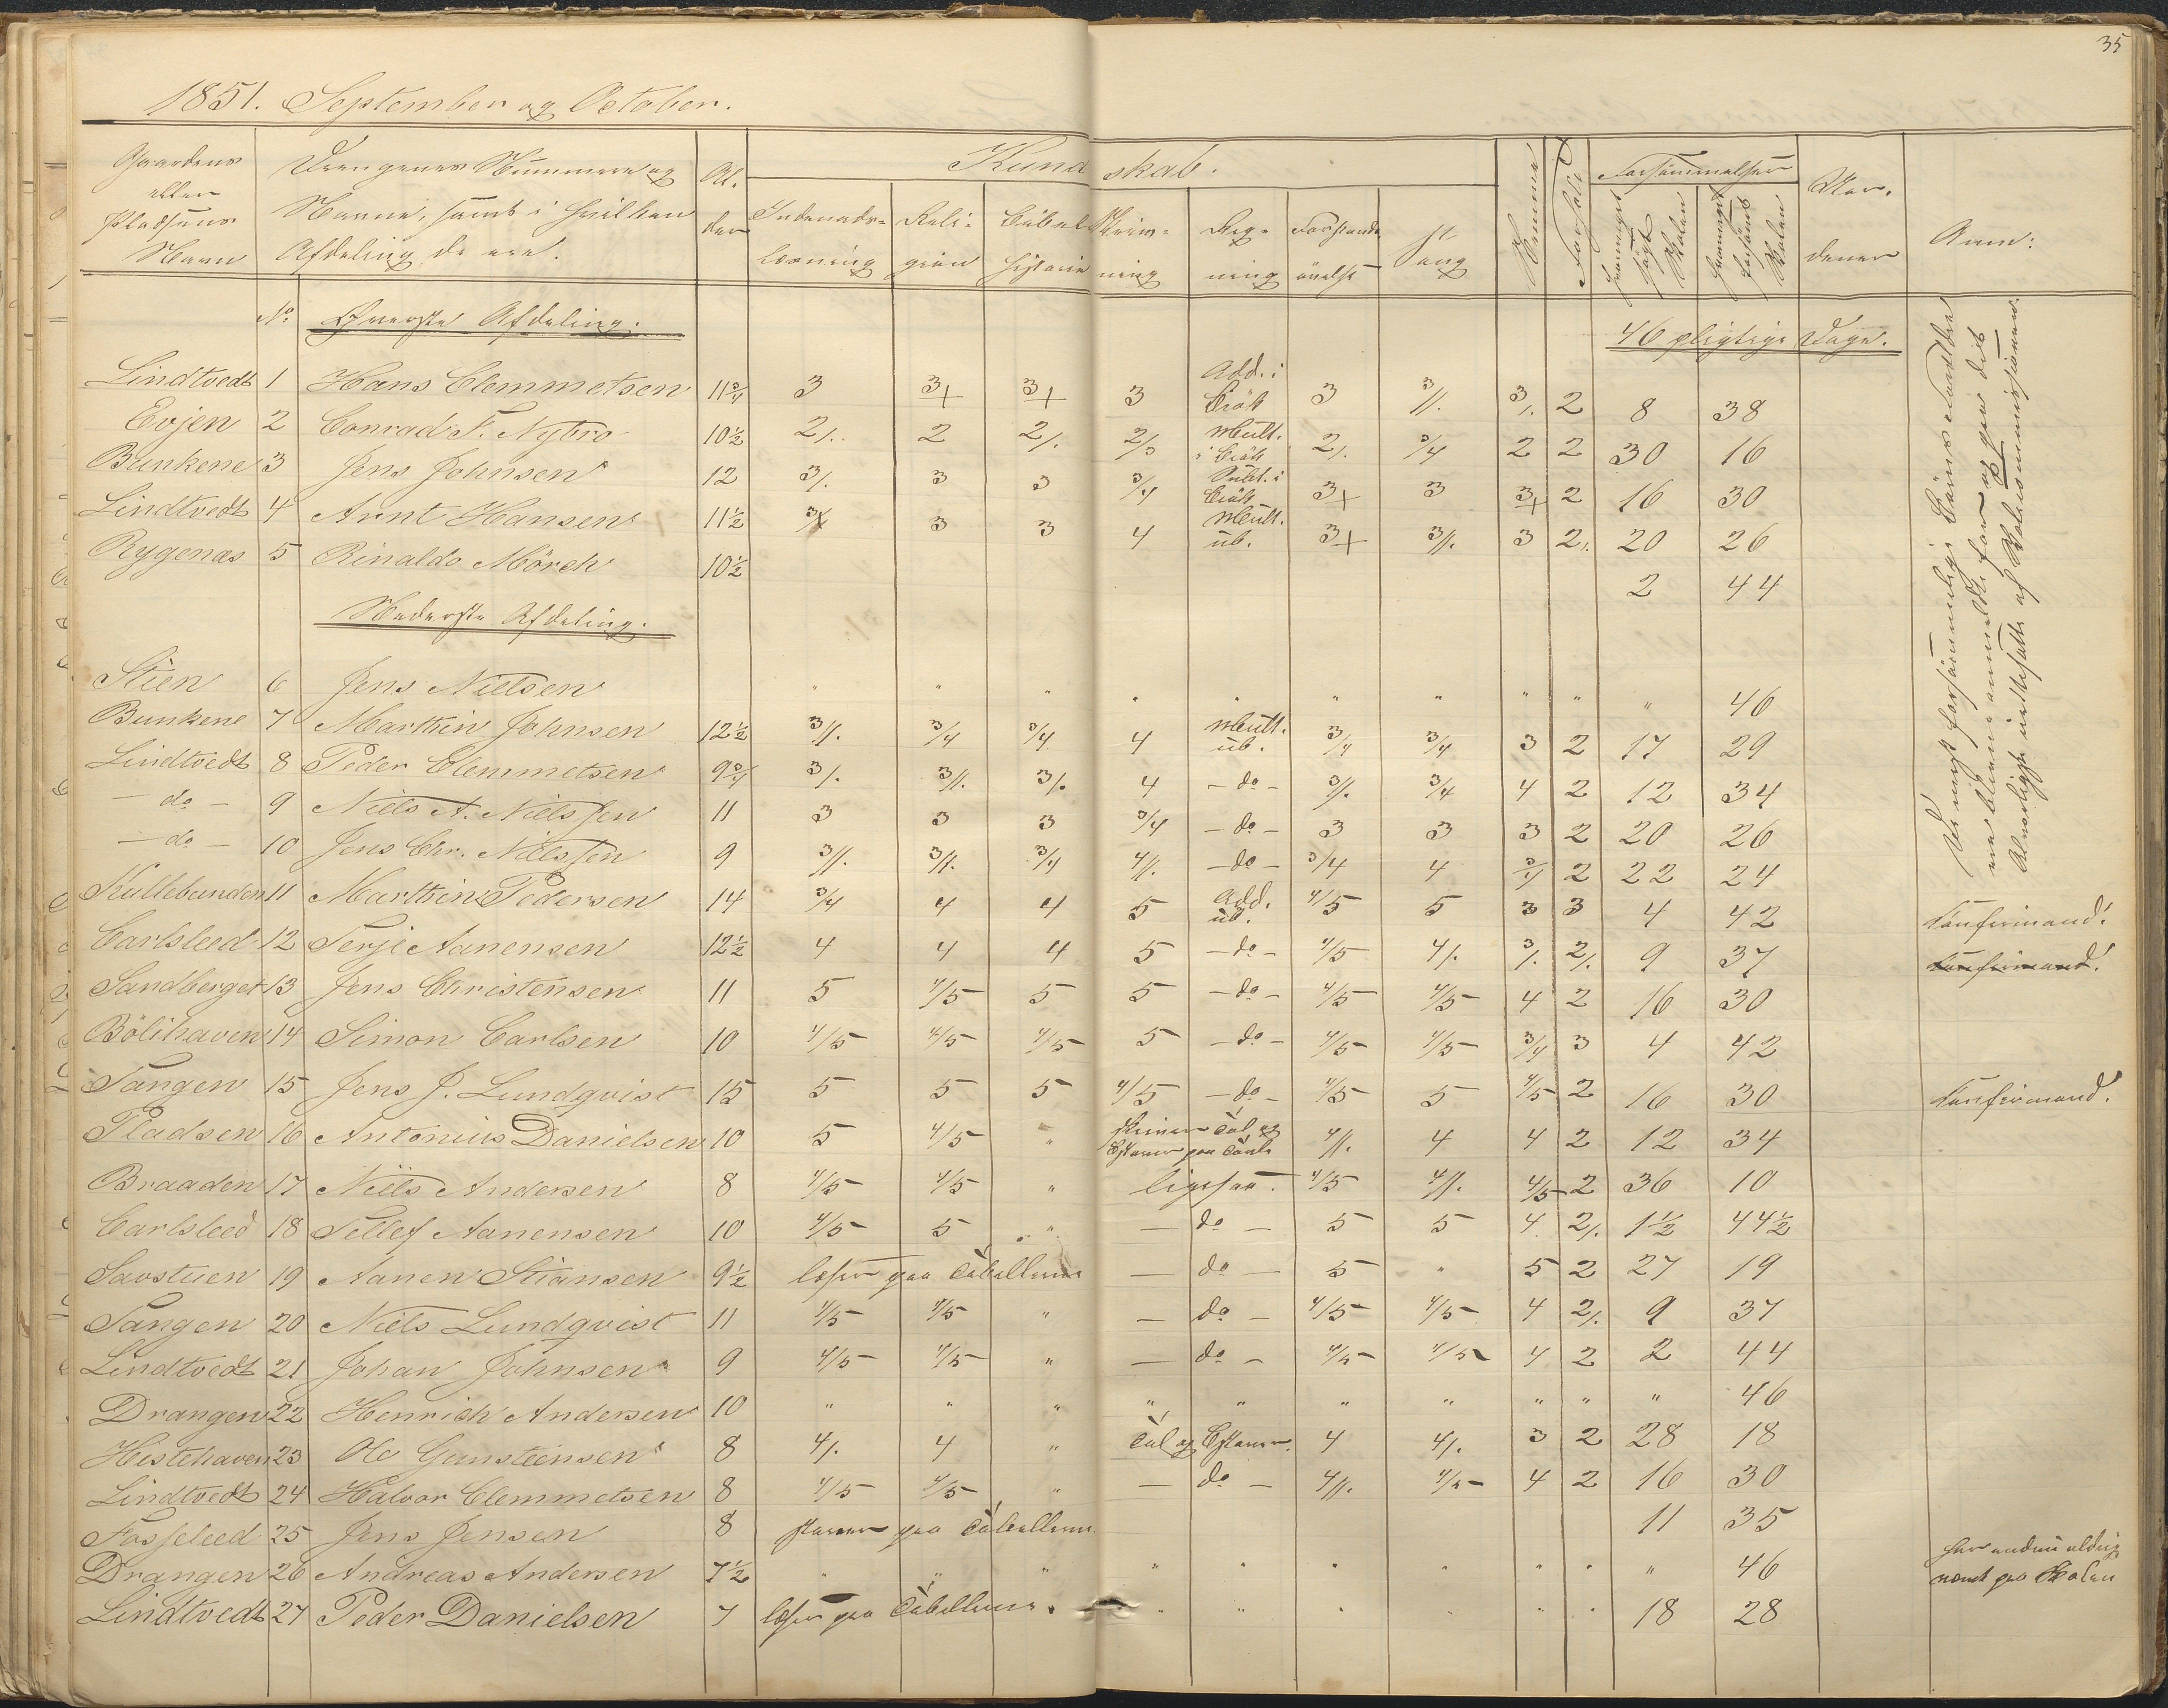 35
1851. September og October.
Gaardens eller Pladsens Navn
Drengenes Nummere og Navne, samt i hvilken Afdeling de ere.
Al- der
Kundskab.
Indenads- læsning
Reli- gion
Bibel historie
Skriv- ning
Reg- ning
Forstands øvelse
Sang
Nemme
Forhold
Forsømmelser
fremmget søgt Skolen
fremmget forsømt Skolen
Anm:
No. Øverste Afdeling.
46 pligtige Dage.
Lindtvedt 1 Hans Clemmetsen 11¾ 3 3+ 3+ 3 Add. i Brøk 3 3//. 3/. 2 8 38
Evjen 2 Conrad F. Nybro 10½ 2/. 2 2/. 2/3 Mult. i Brøk 2/. 3/4 2 2 30 16
Bunkene 3 Jens Johnsen 12 3/. 3 3 3/4 Subt. i Brøk 3+ 3 3+ 2 16 30
Lindtvedt 4 Arnt Hansen 11½ 3 3 4 Mult. ub. 3+ 3//. 3 2/. 20 26
Rygenæs 5 Rinaldo Mörch 10½ 2 44
Nederste Afdeling.
Stien 6 Jens Nielsen " " " " " " " " " " 46
Bunkene 7 Marthin Johnsen 12½ 3//. 3/4 3/4 4 Mult. ub. 3/4 3/4 3 2 17 29
Lindtvedt 8 Peder Clemmetsen 9¾ 3/. 3//. 3/. 4 - do - 3//. 3/4 4 2 12 34
- do - 9 Niels A. Nielssen 11 3 3 3 3/4 - do - 3 3 3 2 20 26
- do - 10 Jens Chr. Nielssen 9 3//. 3//. 3/4 4//. - do - 3/4 4 3/4 2 22 24
Kullebunden 11 Marthin Pedersen 14 3/4 4 4 5 Add. ub. 4/5 5 3 3 4 42 Confirmand.
Carlsleed 12 Terje Aanensen 12½ 4 4 4 5 - do - 4/5 4/. 3/. 2/. 9 37 Confirmand.
Sandberget 13 Jens Christensen 11 5 4/5 5 5 - do - 4/5 4/5 4 2 16 30
Bölihaven 14 Simon Carlsen 10 4/5 4/5 4/5 5 - do - 4/5 4/5 3/4 3 4 42
Tangen 15 Jens J. Lundqvist 15 5 5 5 4/5 - do - 4/5 5 4/5 2 16 30 Confirmand.
Pladsen 16 Antonius Danielsen 10 5 4/5 " skriver Tal og Bstaver paa Tavle 4//. 4 4 2 12 34
Braaden 17 Niels Andersen 8 4/5 4/5 " ligesaa. 4/5 4//. 4/5 2 36 10
Carlsleed 18 Tellef Aanensen 10 4/5 5 " - do - 5 5 4 2/. 1½ 44½
Savstuen 19 Aanen Stiansen 9½ læser paa Tabellerne - do - 5 " 5 2 27 19
Tangen 20 Niels Lundqvist 11 4/5 4/5 " - do - 4/5 4/5 4 2/. 9 37
Lindtvedt 21 Johan Johnsen 9 4/5 4/5 " - do - 4/5 4/5 4 2 2 44
Drangen 22 Henrich Andersen 10 " " " " " " " " " " 46
Histehaven 23 Ole Gunsteensen 8 4/. 4 " Tal og Bstaver. 4 4/. 3 2 28 18
Lindtvedt 24 Halvor Clemmetsen 8 4/5 4/5 " - do - 4//. 4/5 4 2 16 30
Fosseleed 25 Jens Jensen 8 staver paa Tabellerne 11 35
Drangen 26 Andreas Andersen 7½ " " " " " " " " " " 46 har endnu aldrig været paa Skolen
Lindtvedt 27 Peder Danielsen 7 læser paa Tabellerne. " " " " " " 18 28